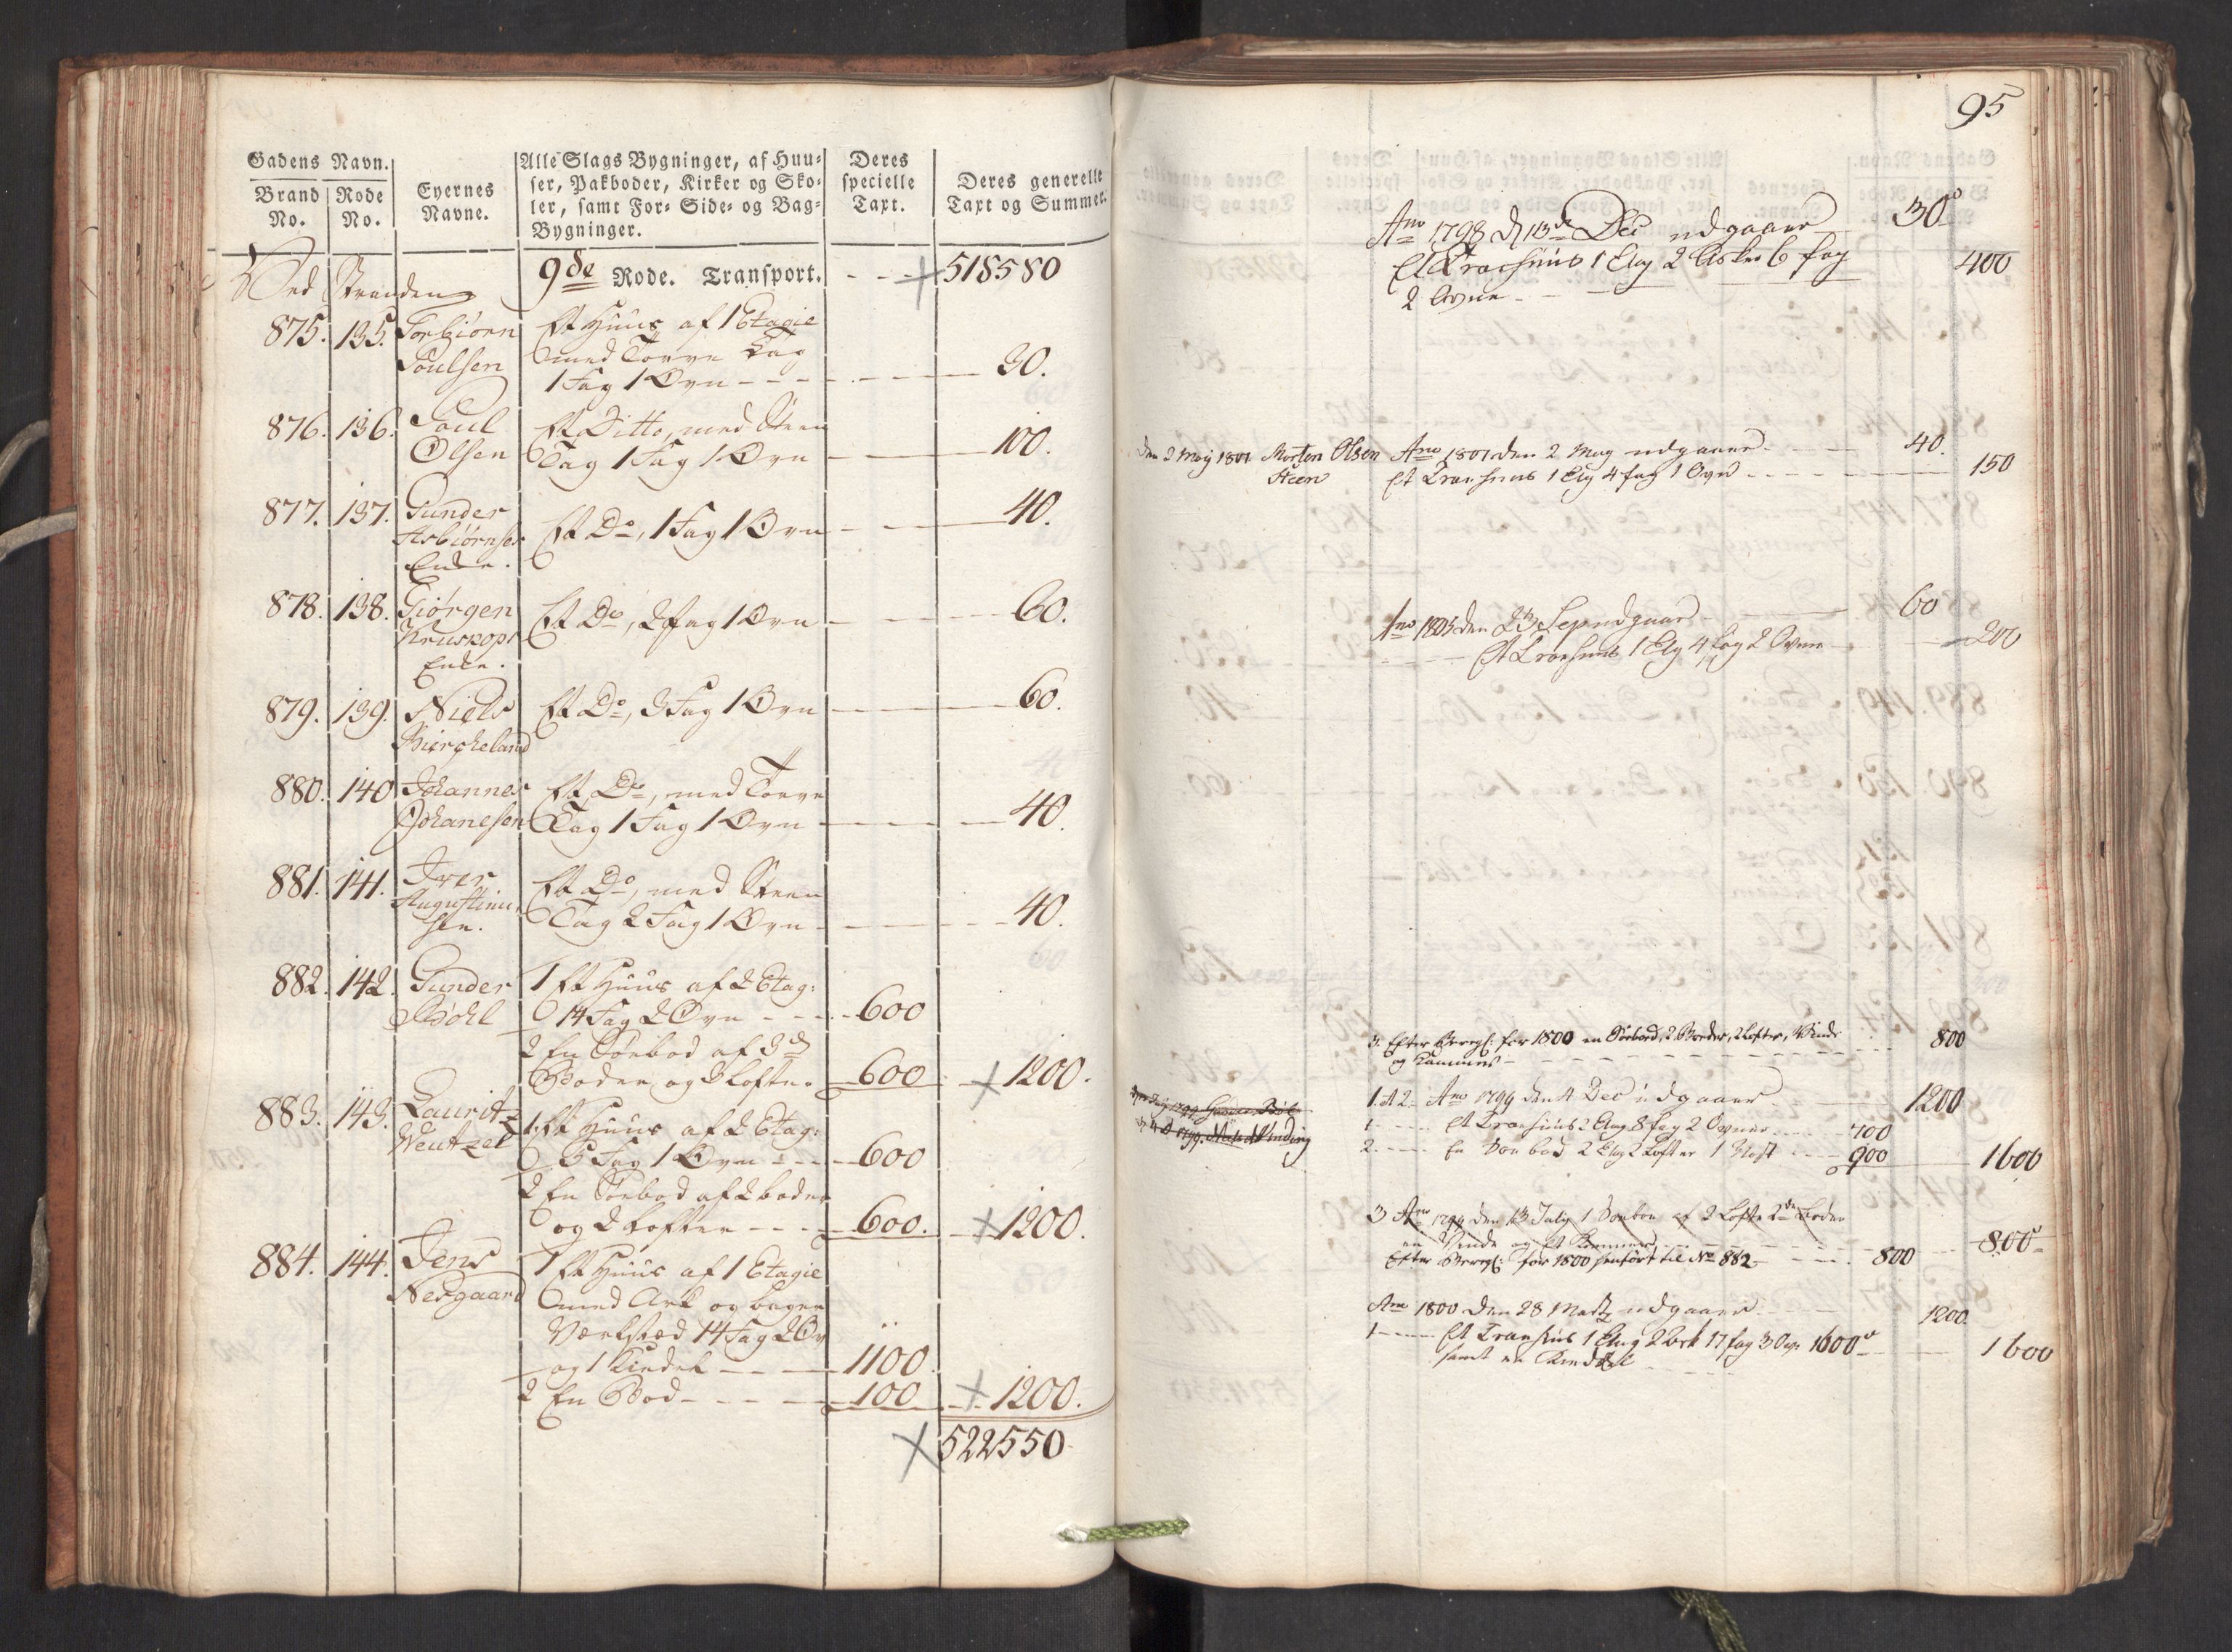 Gadens Navn.
Brand No.
Node No.
Eyernes Navne.
Alle Slags Bygninger, af Huu-
ser, Pakboder, Kirker og Sko-
ler, samt For- Side- og Bag-
Bygninger.
Deres specielle Taxt.
Deres generelle Taxt og Summer.
Ved Stranden 9de Rode. Transport. - - - 518580
875. 135. Torbiørn Et Huus af 1 Etagie
Poulsen med Torve Tag
1 Fag 1 Ovn - - - 30.
876. 136. Poul Et Ditto, med Steen
Olsen Tag 1 Fag 1 Ovn - 100.
877. 137. Gunder
Asbiørnsen Et Do, 1 Fag 1 Ovn - 40.
Enke.
878. 138. Giørgen Et Do, 2 Fag 1 Ovn - 60.
Kruskop
Enke.
879. 139. Niels Et Do, 3 Fag 1 Ovn - 60.
Bierkeland
880. 140 Johannes Et Do, med Torve
Johanesen Tag 1 Fag 1 Ovn - 40.
881. 141. Iver Et Do, med Steen
Augustinu Tag 2 Fag 1 Ovn - 40.
sen.
882. 142. Gunder 1 Et Huus af 2 Etag:
Bøhl 14 Fag 2 Ovn - - - 600
2 En Søebod af 3de
Boder og 3 Lofter 600 1200.
883. 143. Lauritz 1. Et Huus af 2 Etag:
Wentzel 5 Fag 1 Ovn - - - 600
2 En Søebod af 2 boder
og 2 Lofter - - - 600. 1200.
884. 144. Jens 1 Et Huus af 1 Etagie
Nesgaard med Ark og bagen
Værksted 14 Fag 2 Ov
og 1 Kiedel - - 1100.
2 En Bod - - - 100 1200.
522550
95
Ano 1798 d 13de Dec udgaaer 30
Et Traehuus 1 Etag 2 6 fag
2 Ovne - - 400
den 2 Maij 1801 Morten Olsen Ano 1801 den 2 May udgaaer - 40.
Steen Et Traehuus 1 Etg 4 fag 1 Ovn - - 150
Ano 1803 den 23 Sep udgaar - 60
Et Traehuus 1 Etg 4 fag 2 Ovne - 200
3. Efter Beregl: for 1800 en Søebod, 2 Boder, 2 Lofter, Vinde
og Kammer - - 800
1. & 2. Ano 1799 den 4 Dec udgaaer - 1200
1 - - Et Traehuus 2 Etag 8 fag 2 Ovner - - 700
2. - - En Søe bod 2 Etg 2 Lofter 1 - - 900 1600
3 Ano 1799 den 13 July 1 Søeboe af 2 Lofte 2de Boder
en Vinde og Et Kammer - - 800
Efter Beregl: for 1800 henført til No 882 - - 800
Ano 1800 den 28 Martz udgaaer - 1200
1 - - Et Traehuus 1 Etag 2 Ark 17 fag 3 Ov: 1600 - 1600
samt en Kieddel